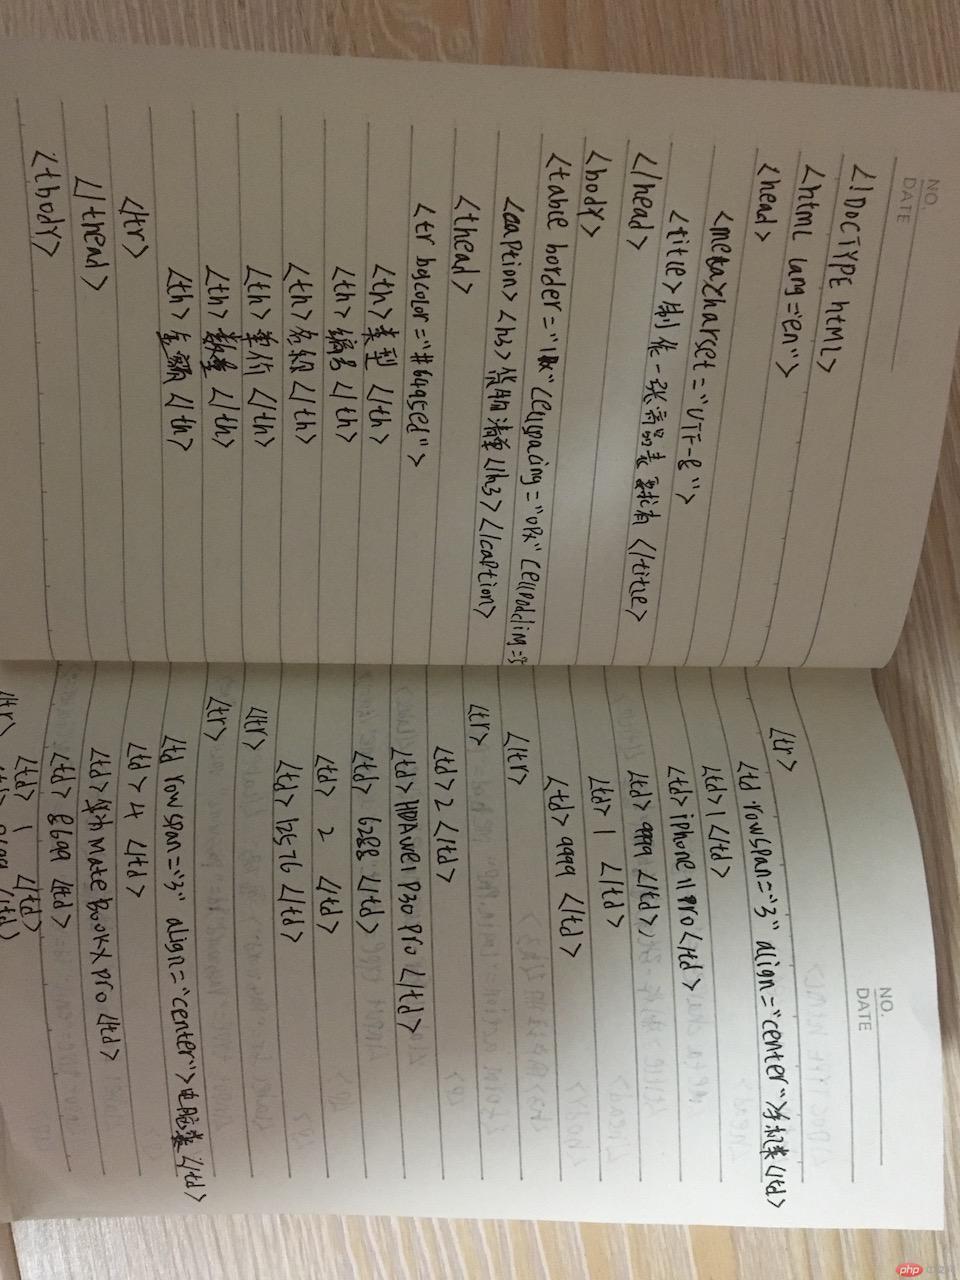 NO.
DATE
<!DOCTYPE html>
<html lang="en">
<head>
<meta charset="UTF-8">
<title>制作一张商品表 </title>
</head>
<body>
<table border="1px" cellspacing="0px" cellpadding=5
<caption><h3>购物清单</h3></caption>
<thead>
<tr bgcolor="#6495ed">
<th>类型</th>
<th>编号</th>
<th>名称</th>
<th>单价</th>
<th>数量</th>
<th>金额</th>
</tr>
</thead>
<tbody>
NO.
DATE
<tr>
<td rowspan="3" align="center">手机类</td>
<td>1</td>
<td>iphone 11 pro</td>
<td>9999</td>
<td>1</td>
<td>9999</td>
</tr>
<tr>
<td>2</td>
<td>HUAWEI P30 pro</td>
<td>6288</td>
<td>2</td>
<td>12576</td>
</tr>
<tr>
<td rowspan="3" align="center">电脑类</td>
<td>4</td>
<td>华为MateBook X pro<td>
<td>8699<td>
<td>1</td>
<td>8699</td>
</tr>
php